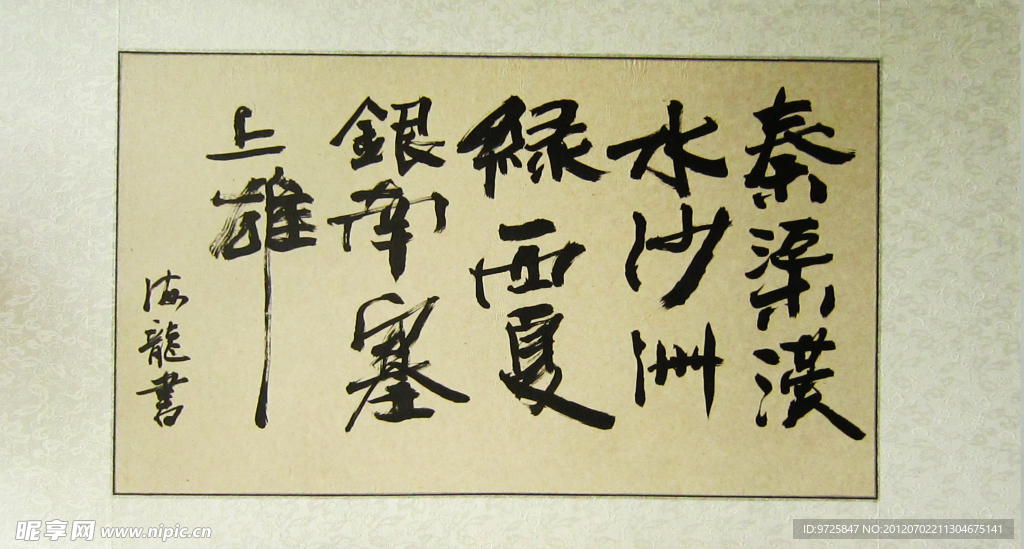 秦渠漢
水沙洲
綠西夏
銀南塞
上雄
海龍書
昵享网 www.nipic.cn
ID:9725847 NO:20120702211304675141